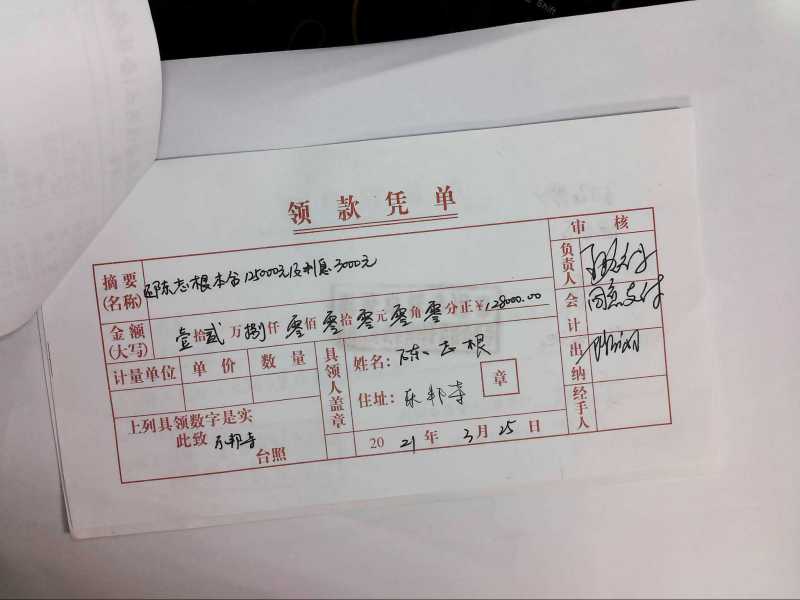 领款凭单
审核
摘要(名称) 还陈志根本金125000元及利息3000元
负责人
金额(大写) 壹拾贰万捌仟零佰零拾零元零角零分正¥128000.00
会计 同意支付
计量单位 单价 数量
具领人盖章
姓名：陈志根
住址： 邦寺
章
出纳
上列具领数字是实
此致 邦寺
台照
2021年3月25日
经手人